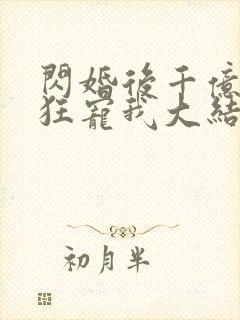 閃婚後千億
狂寵我大結
初月半